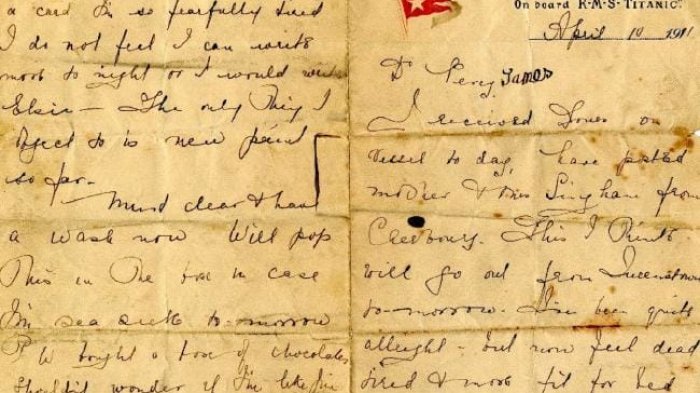 a card I'm so fearfully tired
I do not feel I can write
more to night or I would write
Elsie — The only thing I
object to is new paint
so far —
Must clear & have
a wash now Will pop
This in The box in case
I'm sea sick to-morrow
P W bought a box of chocolates
Shouldn't wonder if I'm like Jim
On board R·M·S·TITANIC.
April 10 1911
Dr Percy James
I received Yours on
Vessel to day, have posted
mother & from
Cherbourg. This I Think
will go out from Queenstown
to-morrow. I've been quite
allright - but now feel dead
tired & more fit for bed